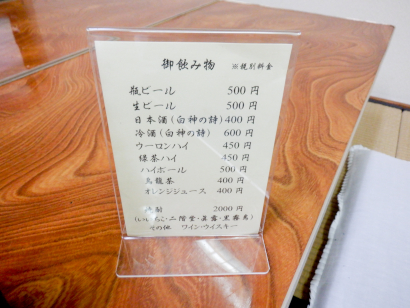 御飲み物 ※規別料金
瓶ビール 500 円
生ビール 500 円
日本酒(白神の詩) 400 円
冷酒(白神の詩) 600 円
ウーロンハイ 450 円
緑茶ハイ 450 円
ハイボール 500 円
烏龍茶 400 円
オレンジジュース 400 円
2000 円
(いいちこ・二階堂・眞露・黒霧島)
その他 ワイン・ウイスキー